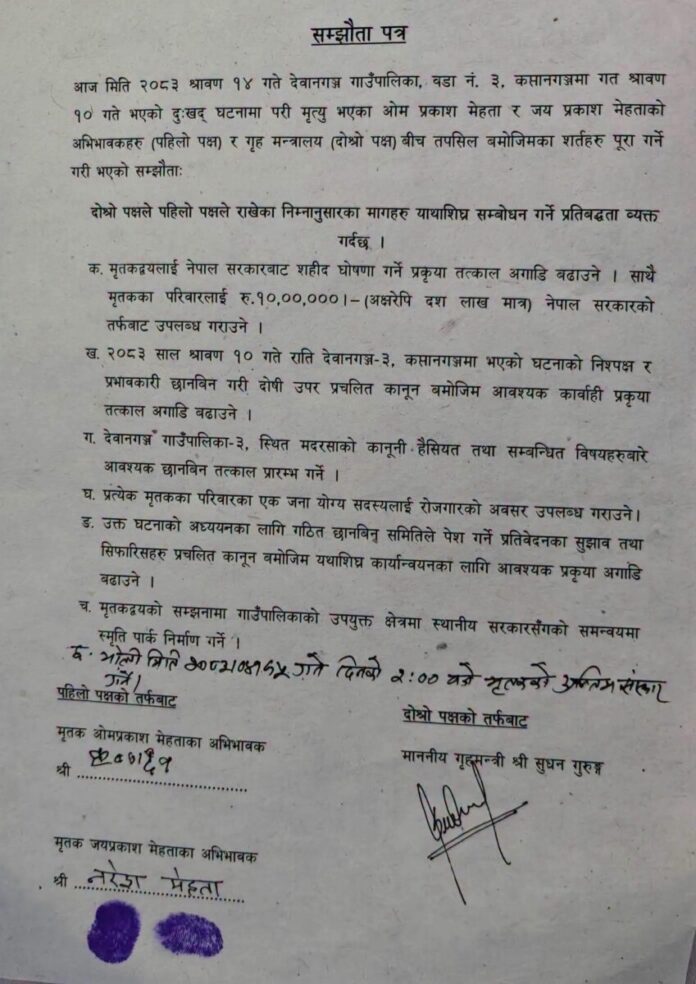 सम्झौता पत्र
आज मिति २०८३ श्रावण १४ गते देवानगञ्ज गाउँपालिका, वडा नं. ३, कसानगञ्जमा गत श्रावण
१० गते भएको दुःखद् घटनामा परी मृत्यु भएका ओम प्रकाश मेहता र जय प्रकाश मेहताको
अभिभावकहरु (पहिलो पक्ष) र गृह मन्त्रालय (दोश्रो पक्ष) बीच तपसिल बमोजिमका शर्तहरु पूरा गर्ने
गरी भएको सम्झौताः
दोश्रो पक्षले पहिलो पक्षले राखेका निम्नानुसारका मागहरु याथाशिघ्र सम्बोधन गर्ने प्रतिबद्धता व्यक्त
गर्दछ ।
क. मृतकद्वयलाई नेपाल सरकारबाट शहीद घोषणा गर्ने प्रकृया तत्काल अगाडि बढाउने । साथै
मृतकका परिवारलाई रु.१०,००,०००।– (अक्षरेपि दश लाख मात्र) नेपाल सरकारको
तर्फबाट उपलब्ध गराउने ।
ख. २०८३ साल श्रावण १० गते राति देवानगञ्ज-३, कसानगञ्जमा भएको घटनाको निश्पक्ष र
प्रभावकारी छानविन गरी दोषी उपर प्रचलित कानून बमोजिम आवश्यक कार्वाही प्रकृया
तत्काल अगाडि बढाउने ।
ग. देवानगञ्ज गाउँपालिका-३, स्थित मदरसाको कानूनी हैसियत तथा सम्बन्धित विषयहरुबारे
आवश्यक छानबिन तत्काल प्रारम्भ गर्ने ।
घ. प्रत्येक मृतकका परिवारका एक जना योग्य सदस्यलाई रोजगारको अवसर उपलब्ध गराउने।
ङ. उक्त घटनाको अध्ययनका लागि गठित छानबिन समितिले पेश गर्ने प्रतिवेदनका सुझाव तथा
सिफारिसहरु प्रचलित कानून बमोजिम यथाशिघ्र कार्यान्वयनका लागि आवश्यक प्रकृया अगाडि
बढाउने ।
च. मृतकद्वयको सम्झनामा गाउँपालिकाको उपयुक्त क्षेत्रमा स्थानीय सरकारसँगको समन्वयमा
स्मृति पार्क निर्माण गर्ने ।
छ. भोली मिति गते दिनको २:०० बजे मृतकको अन्तिम संस्कार
गर्ने।
पहिलो पक्षको तर्फबाट
दोश्रो पक्षको तर्फबाट
मृतक ओमप्रकाश मेहताका अभिभावक
माननीय गृहमन्त्री श्री सुधन गुरुङ्ग
श्री
मृतक जयप्रकाश मेहताका अभिभावक
श्री नरेश मेहता